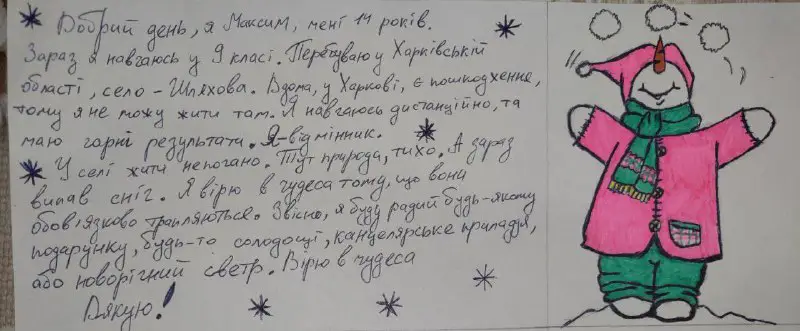 Добрий день, я Максим, мені 14 років.
Зараз я навчаюсь у 9 класі. Перебуваю у Харківській
області, село - Шляхова. Вдома, у Харкові, є пошкодження,
тому я не можу жити там. Я навчаюсь дистанційно, та
маю гарні результати. Я-відмінник.
У селі жити непогано. Тут природа, тихо. А зараз
випав сніг. Я вірю в чудеса тому, що вона
обов'язково трапляються. Звісно, я буду радий будь-якому
подарунку, будь-то солодощі, канцелярське приладдя,
або новорічний светр. Вірю в чудеса
Дякую!